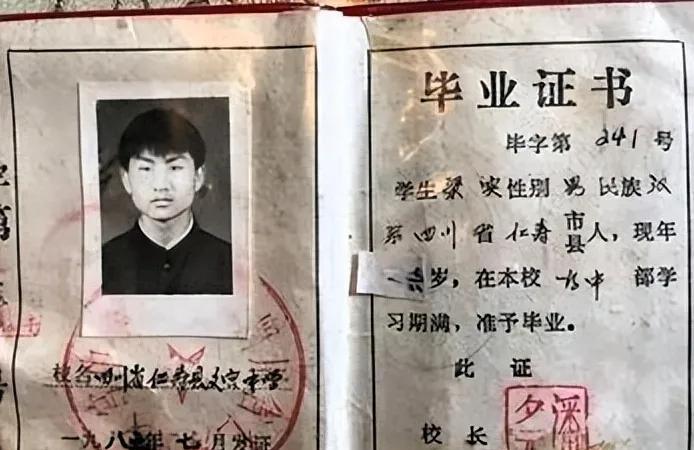 校名四川省仁寿县文宫中学
一九八 年七月发证
毕业证书
毕字第 241 号
学生梁 性别 男 民族 汉
系 四川 省 仁寿 市县人，现年
岁，在本校 初中 部学
习期满，准予毕业。
此证
校长